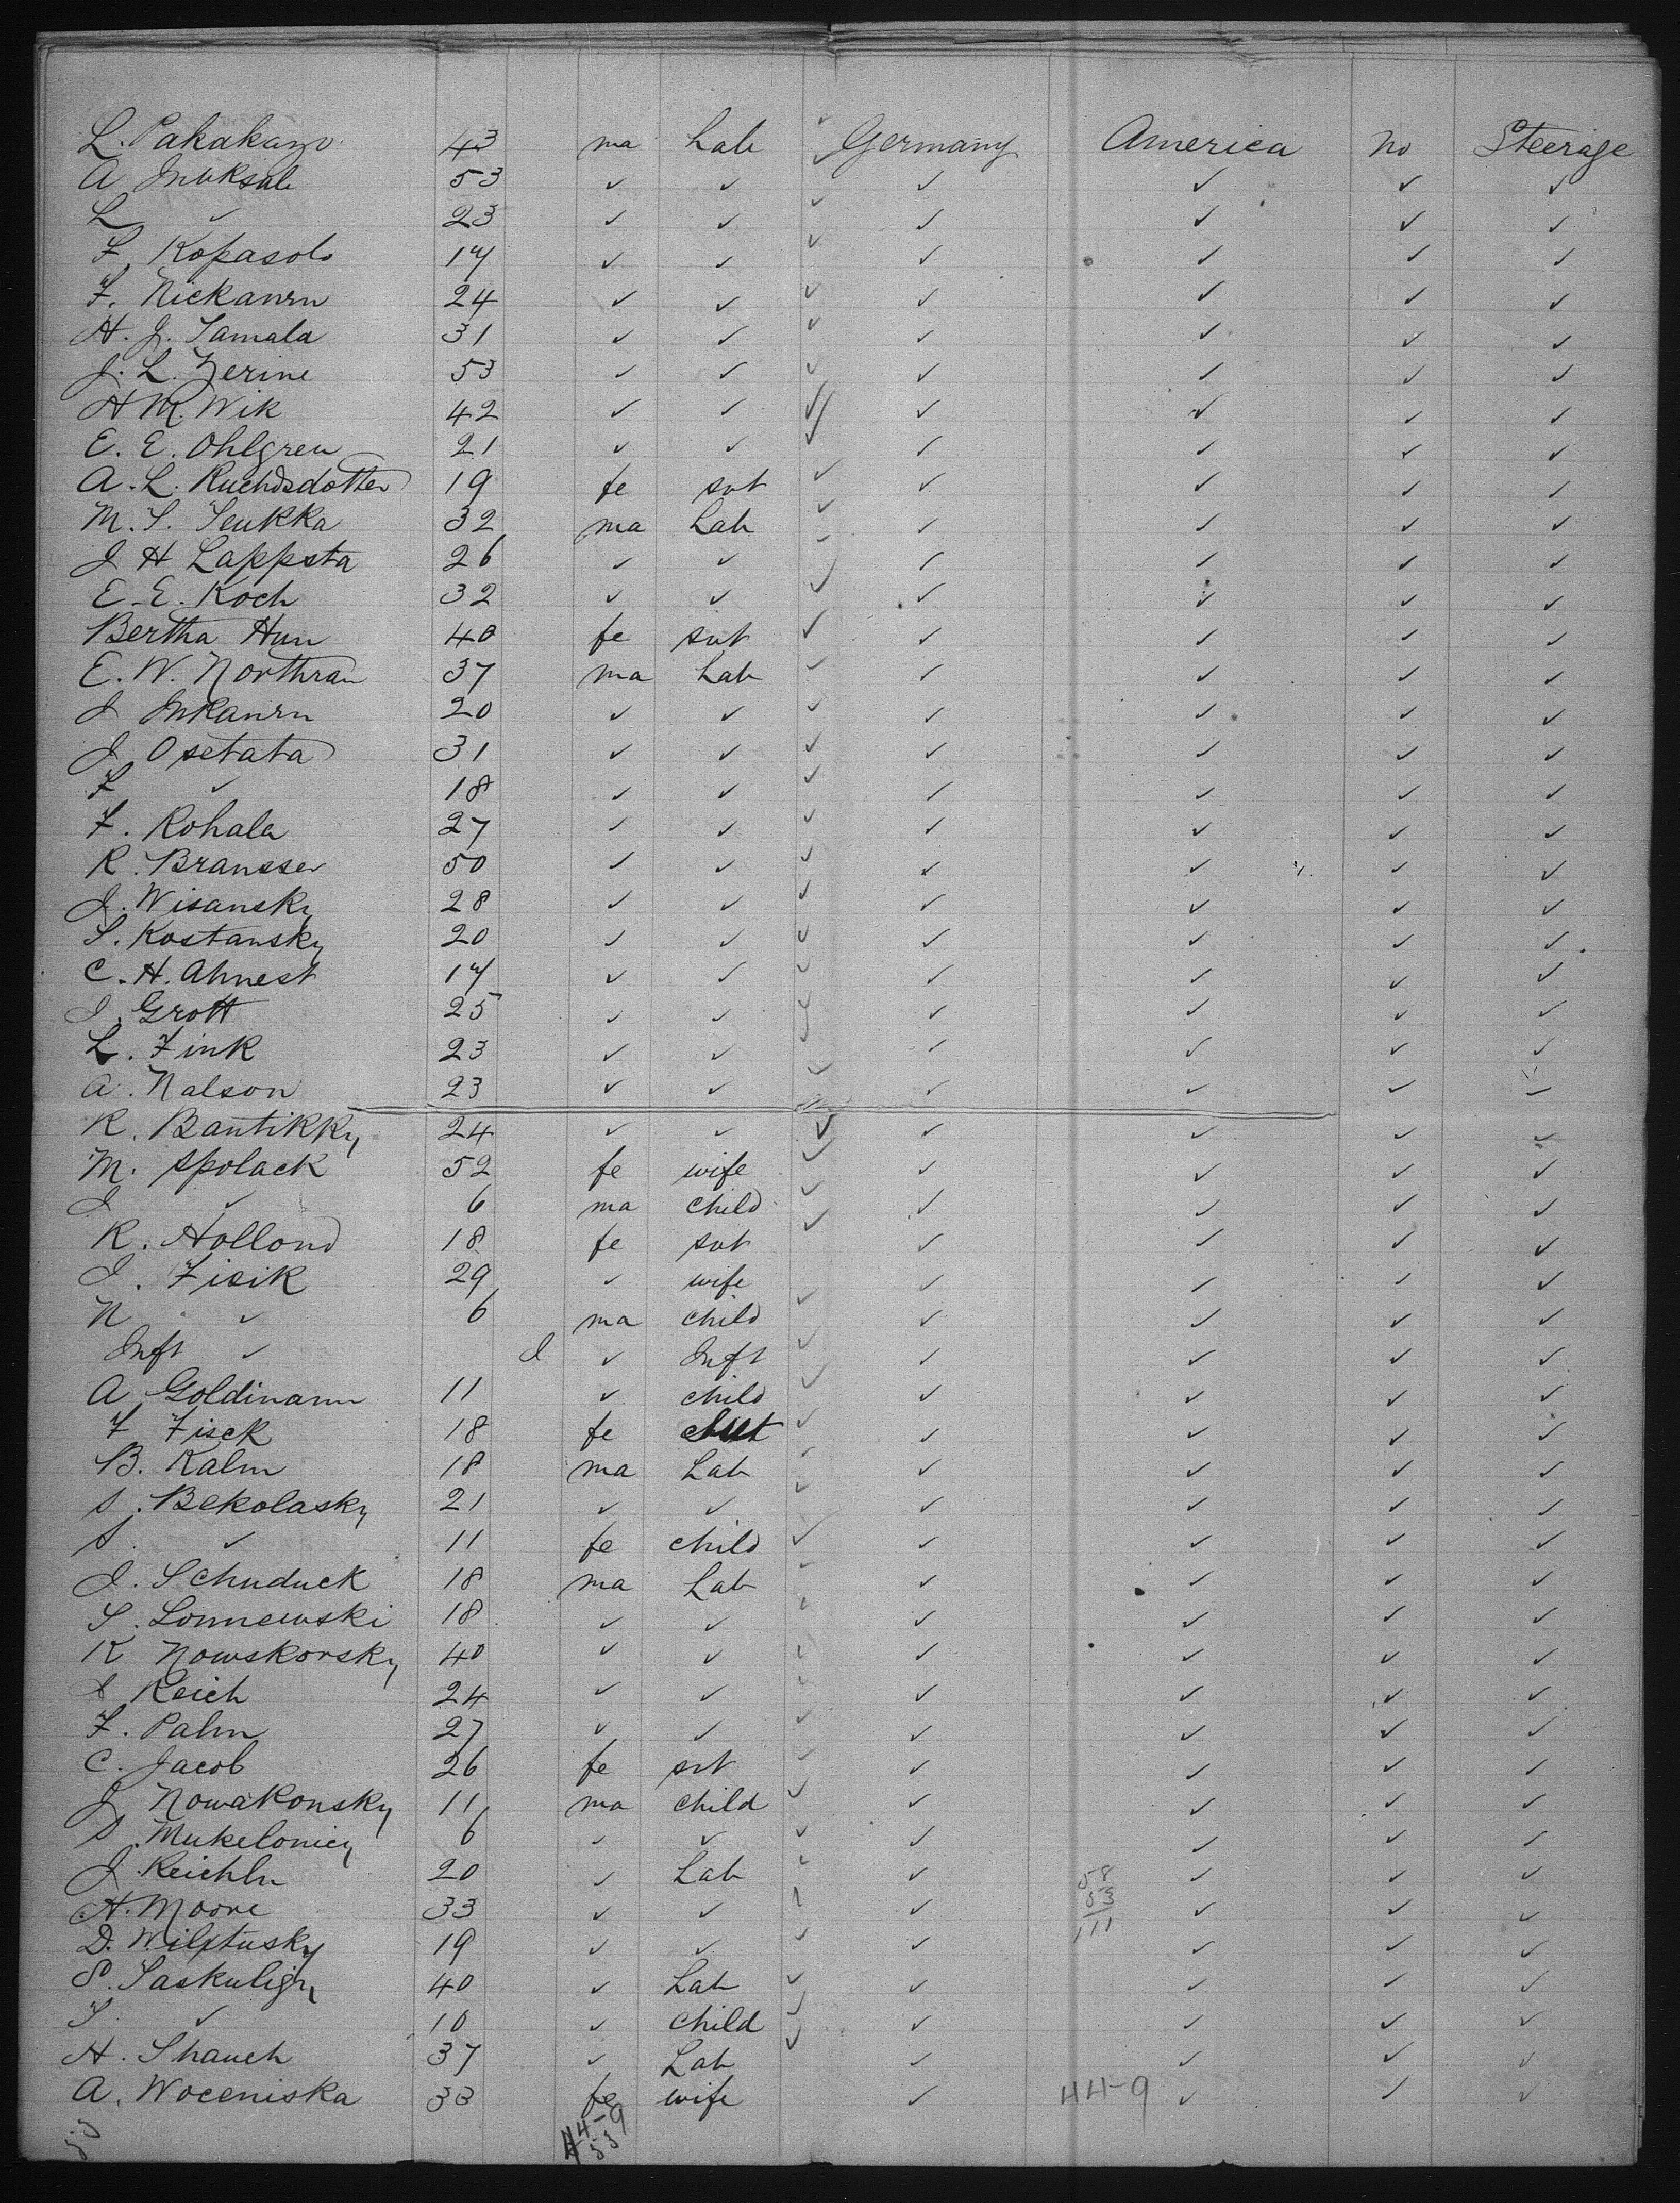 L. Pakakango 43 ma Lab ✓ Germany America no Steerage
A Inuksale 53 ✓ ✓ ✓ ✓ ✓ ✓ ✓
L ✓ 23 ✓ ✓ ✓ ✓ ✓ ✓ ✓
F. Kopasolo 17 ✓ ✓ ✓ ✓ ✓ ✓ ✓
F. Nickanrn 24 ✓ ✓ ✓ ✓ ✓ ✓ ✓
H. J. Tamala 31 ✓ ✓ ✓ ✓ ✓ ✓ ✓
J. L. Zerine 53 ✓ ✓ ✓ ✓ ✓ ✓ ✓
H M. Wik 42 ✓ ✓ ✓ ✓ ✓ ✓ ✓
E. E. Ohlgren 21 ✓ ✓ ✓ ✓ ✓ ✓ ✓
A. L. Ruchdsdotter 19 fe svt ✓ ✓ ✓ ✓ ✓
M. S. Seukka 32 ma Lab ✓ ✓ ✓ ✓ ✓
J H Lappsta 26 ✓ ✓ ✓ ✓ ✓ ✓ ✓
E. E. Koch 32 ✓ ✓ ✓ ✓ ✓ ✓ ✓
Bertha Hun 40 fe svt ✓ ✓ ✓ ✓ ✓
E. W. Northran 37 ma Lab ✓ ✓ ✓ ✓ ✓
J Inkanrn 20 ✓ ✓ ✓ ✓ ✓ ✓ ✓
J Osetata 31 ✓ ✓ ✓ ✓ ✓ ✓ ✓
F ✓ 18 ✓ ✓ ✓ ✓ ✓ ✓ ✓
F. Rohala 27 ✓ ✓ ✓ ✓ ✓ ✓ ✓
R. Bransser 50 ✓ ✓ ✓ ✓ ✓ ✓ ✓
J. Wisansky 28 ✓ ✓ ✓ ✓ ✓ ✓ ✓
S. Kostansky 20 ✓ ✓ ✓ ✓ ✓ ✓ ✓
C. H. Ahnest 17 ✓ ✓ ✓ ✓ ✓ ✓ ✓
J. Grott 25 ✓ ✓ ✓ ✓ ✓ ✓ ✓
L. Fink 23 ✓ ✓ ✓ ✓ ✓ ✓ ✓
A. Nalson 23 ✓ ✓ ✓ ✓ ✓ ✓ ✓
R. Bantikky 24 ✓ ✓ ✓ ✓ ✓ ✓ ✓
M. Spolack 52 fe wife ✓ ✓ ✓ ✓ ✓
J ✓ 6 ma child ✓ ✓ ✓ ✓ ✓
R. Hollond 18 fe svt ✓ ✓ ✓ ✓ ✓
J. Fisik 29 ✓ wife ✓ ✓ ✓ ✓
N ✓ 6 ma child ✓ ✓ ✓ ✓ ✓
Inft ✓ I ✓ Inft ✓ ✓ ✓ ✓ ✓
A Goldinann 11 ✓ child ✓ ✓ ✓ ✓ ✓
F Fisck 18 fe svt ✓ ✓ ✓ ✓ ✓
B. Kalm 18 ma Lab ✓ ✓ ✓ ✓ ✓
S. Bekolasky 21 ✓ ✓ ✓ ✓ ✓ ✓ ✓
S. ✓ 11 fe child ✓ ✓ ✓ ✓ ✓
J. Schuduck 18 ma Lab ✓ ✓ ✓ ✓ ✓
S. Lonnewski 18 ✓ ✓ ✓ ✓ ✓ ✓ ✓
K Nowskorsky 40 ✓ ✓ ✓ ✓ ✓ ✓ ✓
J Reich 24 ✓ ✓ ✓ ✓ ✓ ✓ ✓
F. Palm 27 ✓ ✓ ✓ ✓ ✓ ✓ ✓
C. Jacob 26 fe svt ✓ ✓ ✓ ✓ ✓
J Nowakonsky 11 ma child ✓ ✓ ✓ ✓ ✓
S. Mukelonicy 6 ✓ ✓ ✓ ✓ ✓ ✓ ✓
J Reichln 20 ✓ Lab ✓ ✓ 58 ✓ ✓ ✓
H. Moore 33 ✓ ✓ ✓ ✓ 53 ✓ ✓ ✓
111
D. Wilptusky 19 ✓ ✓ ✓ ✓ ✓ ✓ ✓
S. Saskulign 40 ✓ Lab ✓ ✓ ✓ ✓ ✓
S. ✓ 10 ✓ child ✓ ✓ ✓ ✓ ✓
H. Shauch 37 ✓ Lab ✓ ✓ ✓ ✓ ✓
A. Woceniska 33 fe wife ✓ 44-9 ✓ ✓ ✓
53 44-9
53